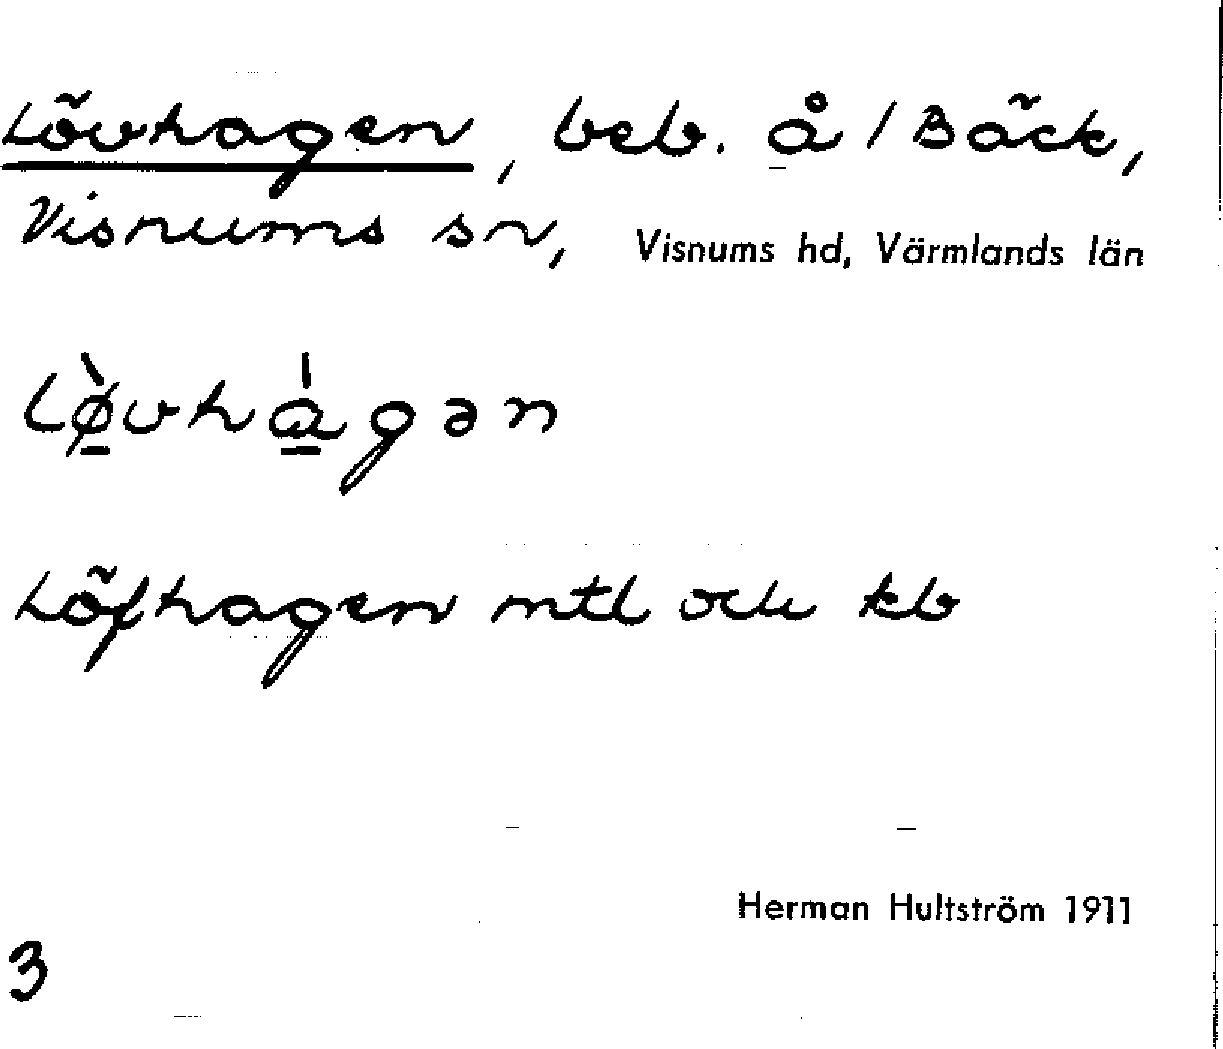 Lövhagen, beb. å /Bäck,
Visnums sn, Visnums hd, Värmlands län
Lø̀vhágən
Löfhagen mtl och kb
Herman Hultström 1911
3